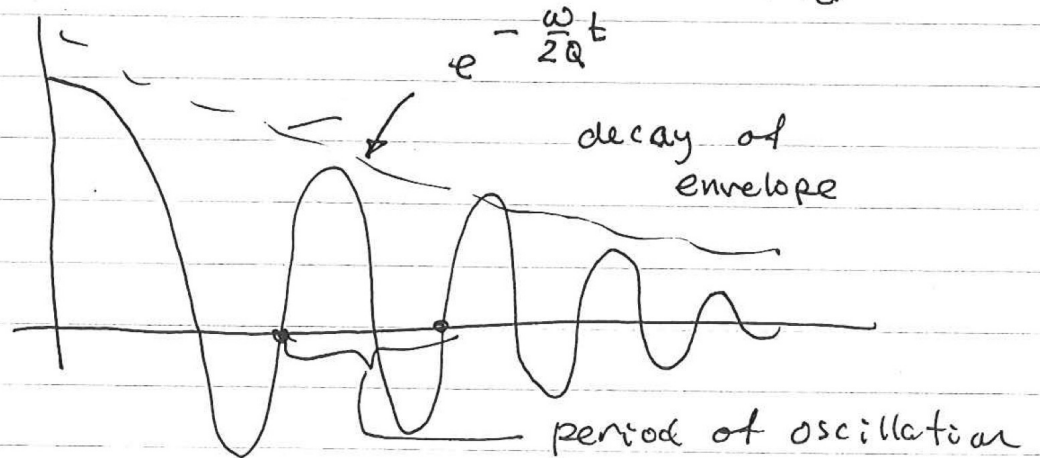 e^{-\frac{ω}{2Q}t}
decay of
envelope
period of oscillation